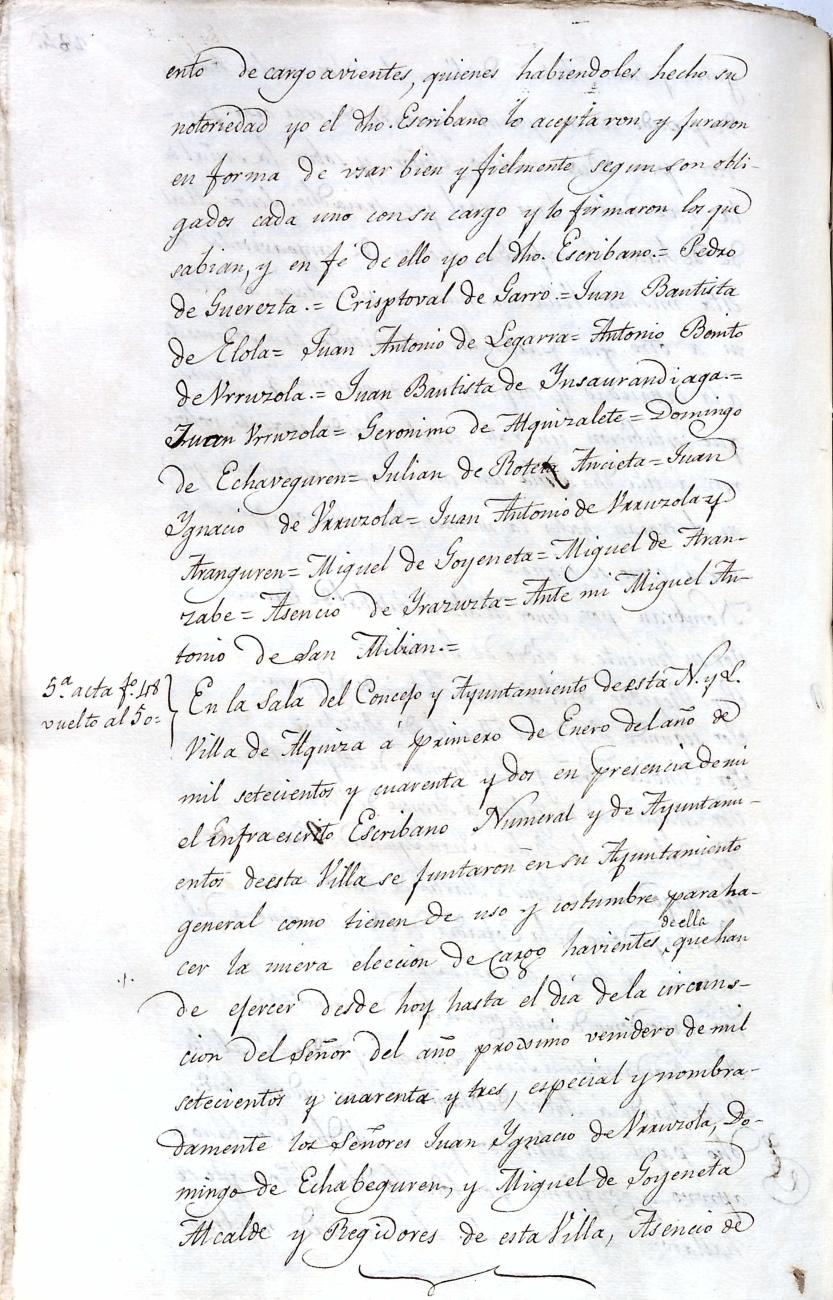 ento de cargo avientes, quienes habiendoles hecho su
notoriedad yo el dho. Escribano lo aceptaron y juraron
en forma de usar bien y fielmente segun son obli-
gados cada uno con su cargo y lo firmaron los que
sabian, y en fé de ello yo el dho. Escribano.= Pedro
de Guerezta.= Crisptoval de Garro.= Juan Bautista
de Elola= Juan Antonio de Legarra= Antonio Benito
de Vrruzola.= Juan Bautista de Ynsaurandiaga.=
Juan Vrruzola= Geronimo de Alquizalete= Domingo
de Echaveguren= Julian de Roteta Ancieta= Juan
Ygnacio de Vrruzola= Juan Antonio de Vrruzola y
Aranguren= Miguel de Goyeneta= Miguel de Aran-
zabe= Asencio de Yrazuzta= Ante mi Miguel An-
tonio de San Milian.=
5.ª acta fº. 48
vuelto al 50=
En la Sala del Concejo y Ayuntamiento de esta N. y L.
Villa de Alquiza á primero de Enero del año de
mil setecientos y cuarenta y dos en presencia de mi
el Infraescrito Escribano Numeral y de Ayuntami-
entos de esta Villa se juntaron en su Ayuntamiento
general como tienen de uso y costumbre para ha-
cer la nueva eleccion de Cargo havientes de ella que han
de ejercer desde hoy hasta el día de la circuns-
cion del Señor del año procsimo venidero de mil
setecientos y cuarenta y tres, especial y nombra-
damente los Señores Juan Ygnacio de Vrruzola, Do-
mingo de Echabeguren, y Miguel de Goyeneta
Alcalde y Regidores de esta Villa, Asencio de